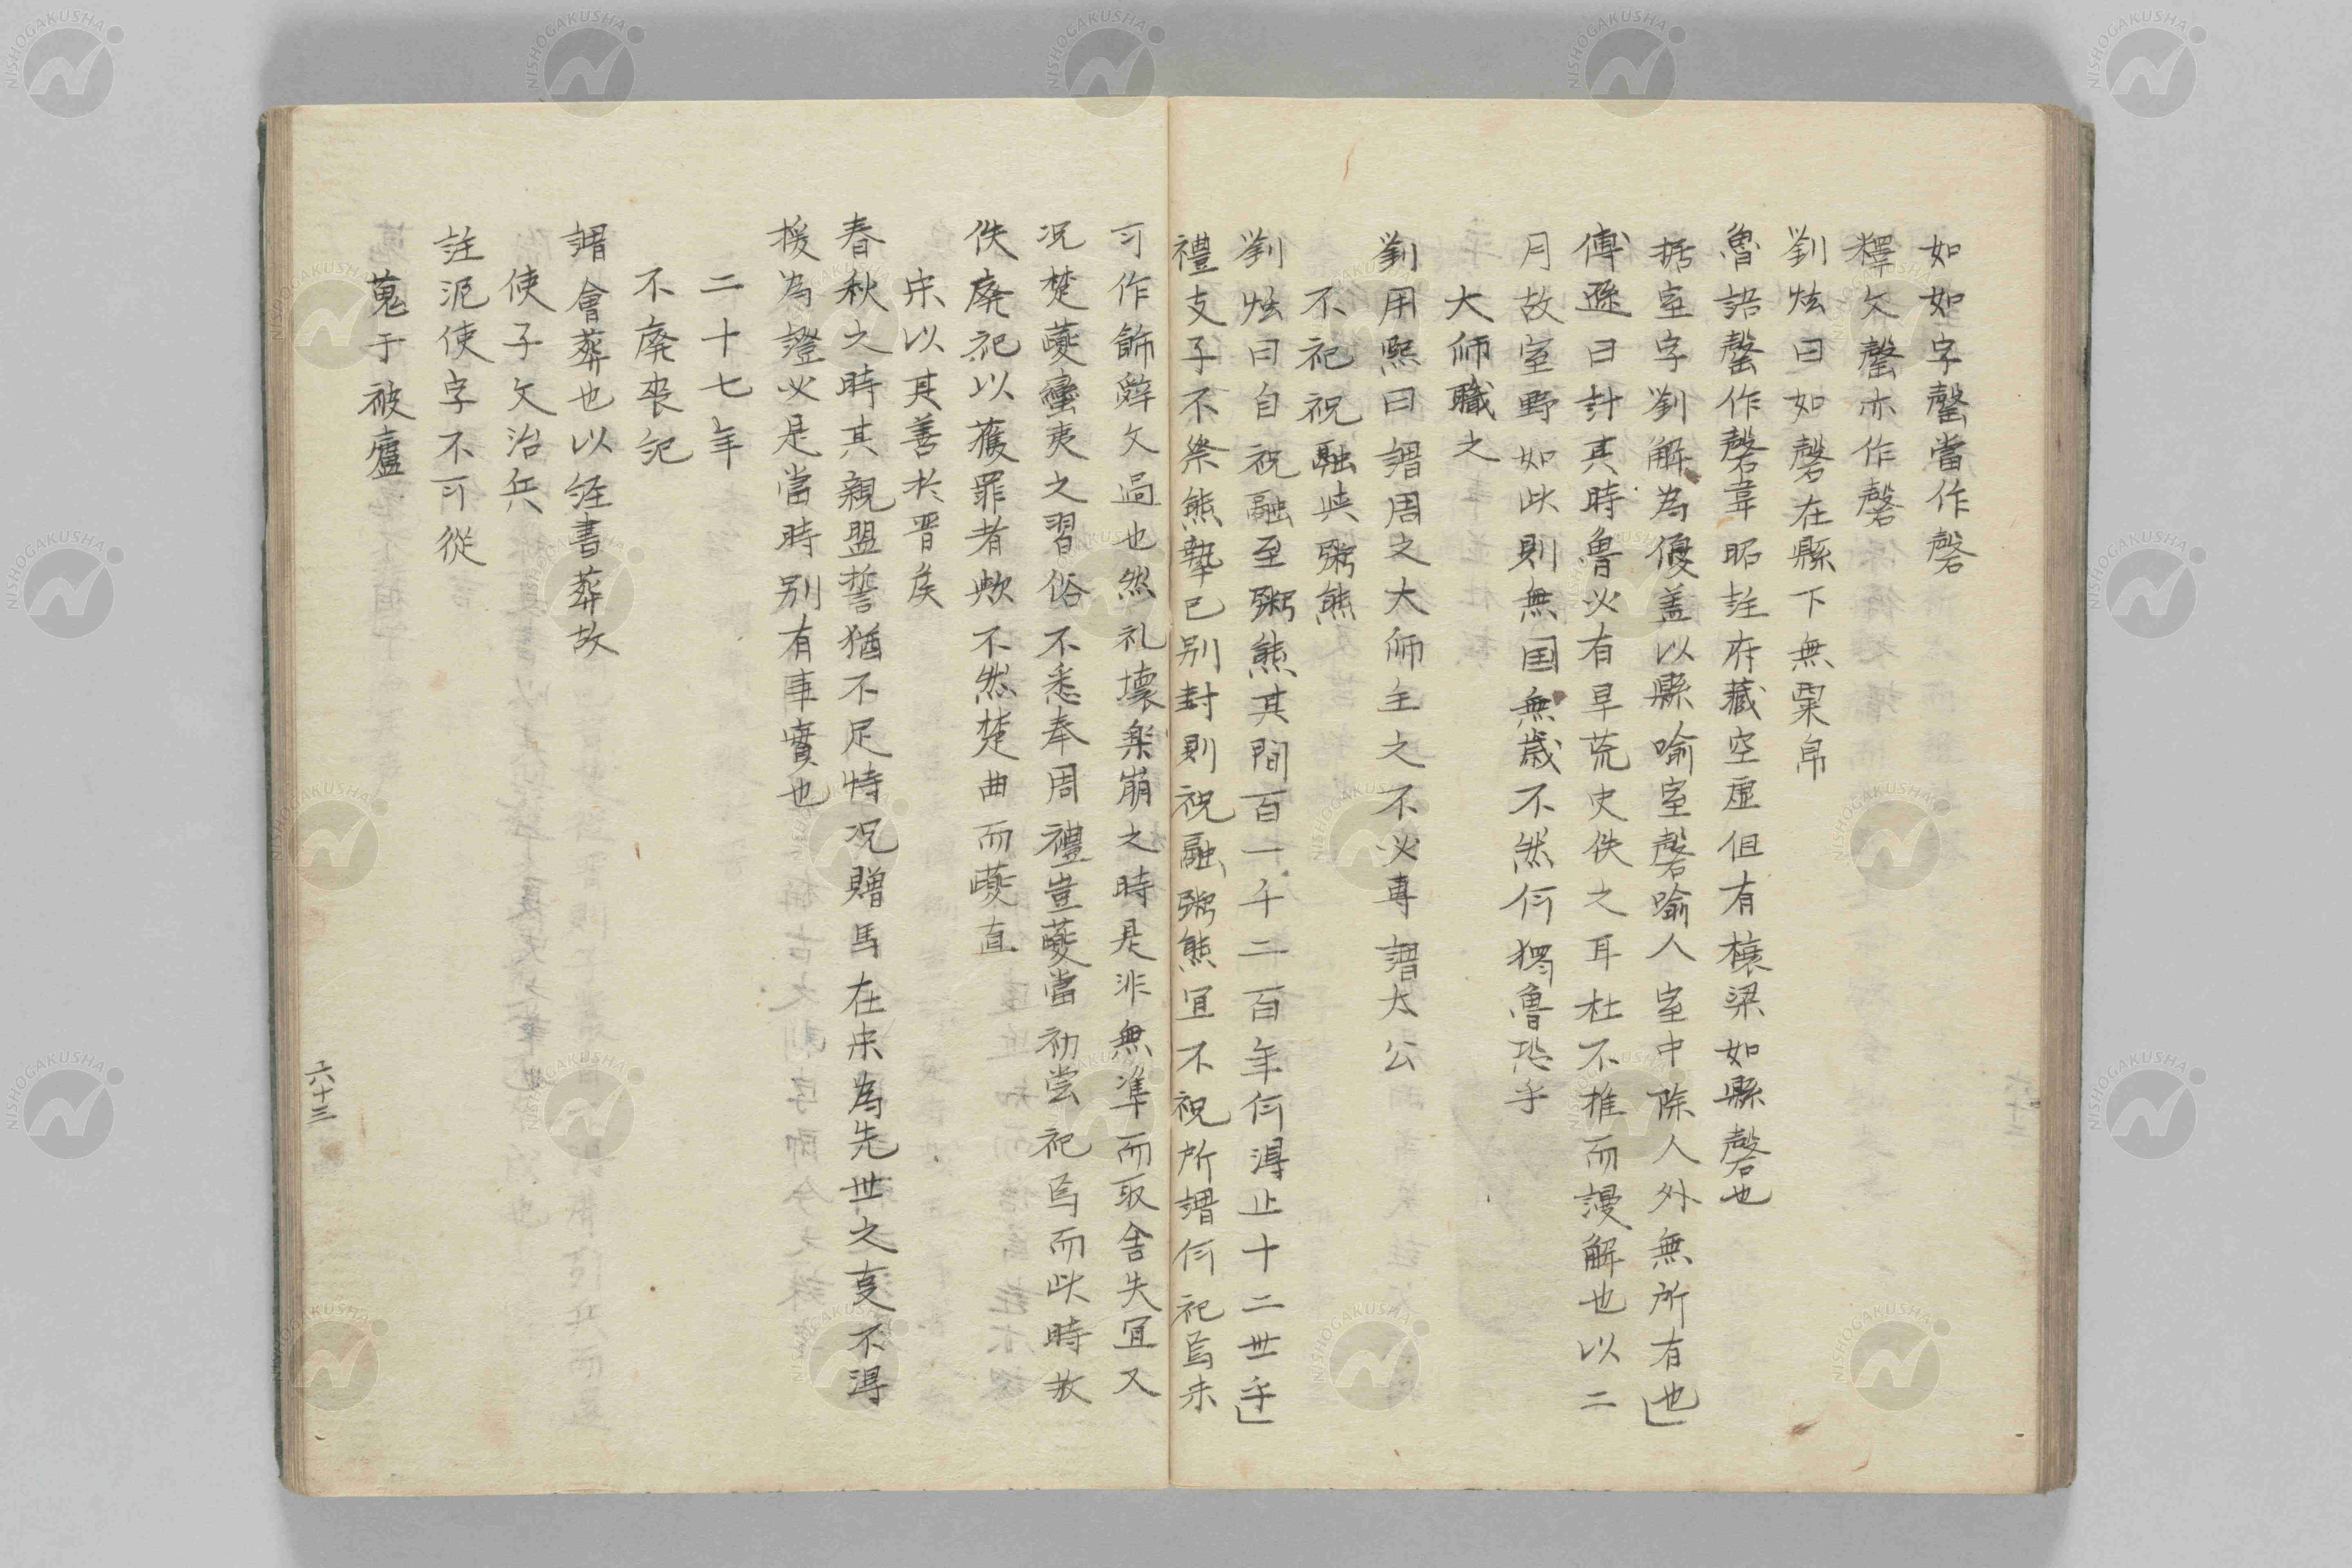 如如字罄當作磬
釋文罄亦作磬
劉炫曰如磬在縣下無粟帛
魯語罄作磬韋昭註府藏空虛但有榱梁如縣磬也
據室字劉解為優蓋以縣喻室磬喻人室中除人外無所有也
傅遜曰計其時魯必有旱荒史佚之耳杜不推而謾解也以二
月故室野如此則無国無歲不然何獨魯恐乎
大師職之
劉用熙曰謂周之大師主之不必專謂大公
不祀祝融與粥熊
劉炫曰自祝融至粥熊其間百一千二百年何得止十二世乎
禮支子不祭熊摯已別封則祝融粥熊宜不祝所謂何祀焉未
可作飾辭文過也然礼壞樂崩之時是非無準而取舍失宜又
况楚夔蠻夷之習俗不悉奉周禮豈夔當初嘗祀焉而此時故
佚廢祀以獲罪者歟不然楚曲而夔直
宋以其善於晋侯
春秋之時其親盟誓猶不足恃况贈馬在宋為先世之事不得
援為證必是當時別有事實也
二十七年
不廢喪紀
謂會葬也以經書葬故
使子文治兵
註泥使字不可從
蒐于被廬
六十三
NISHOGAKUSHA